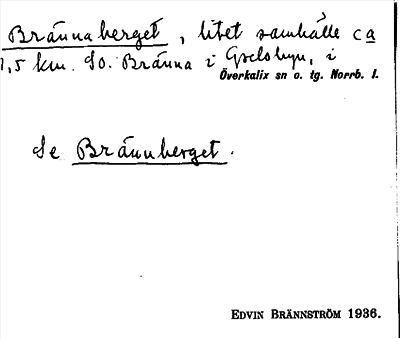 Brännaberget, litet samhälle ca
1,5 km. SO. Bränna i Grelsbyn, i
Överkalix sn o. tg. Norrb. l.
Se Brännberget.
EDVIN BRÄNNSTRÖM 1936.